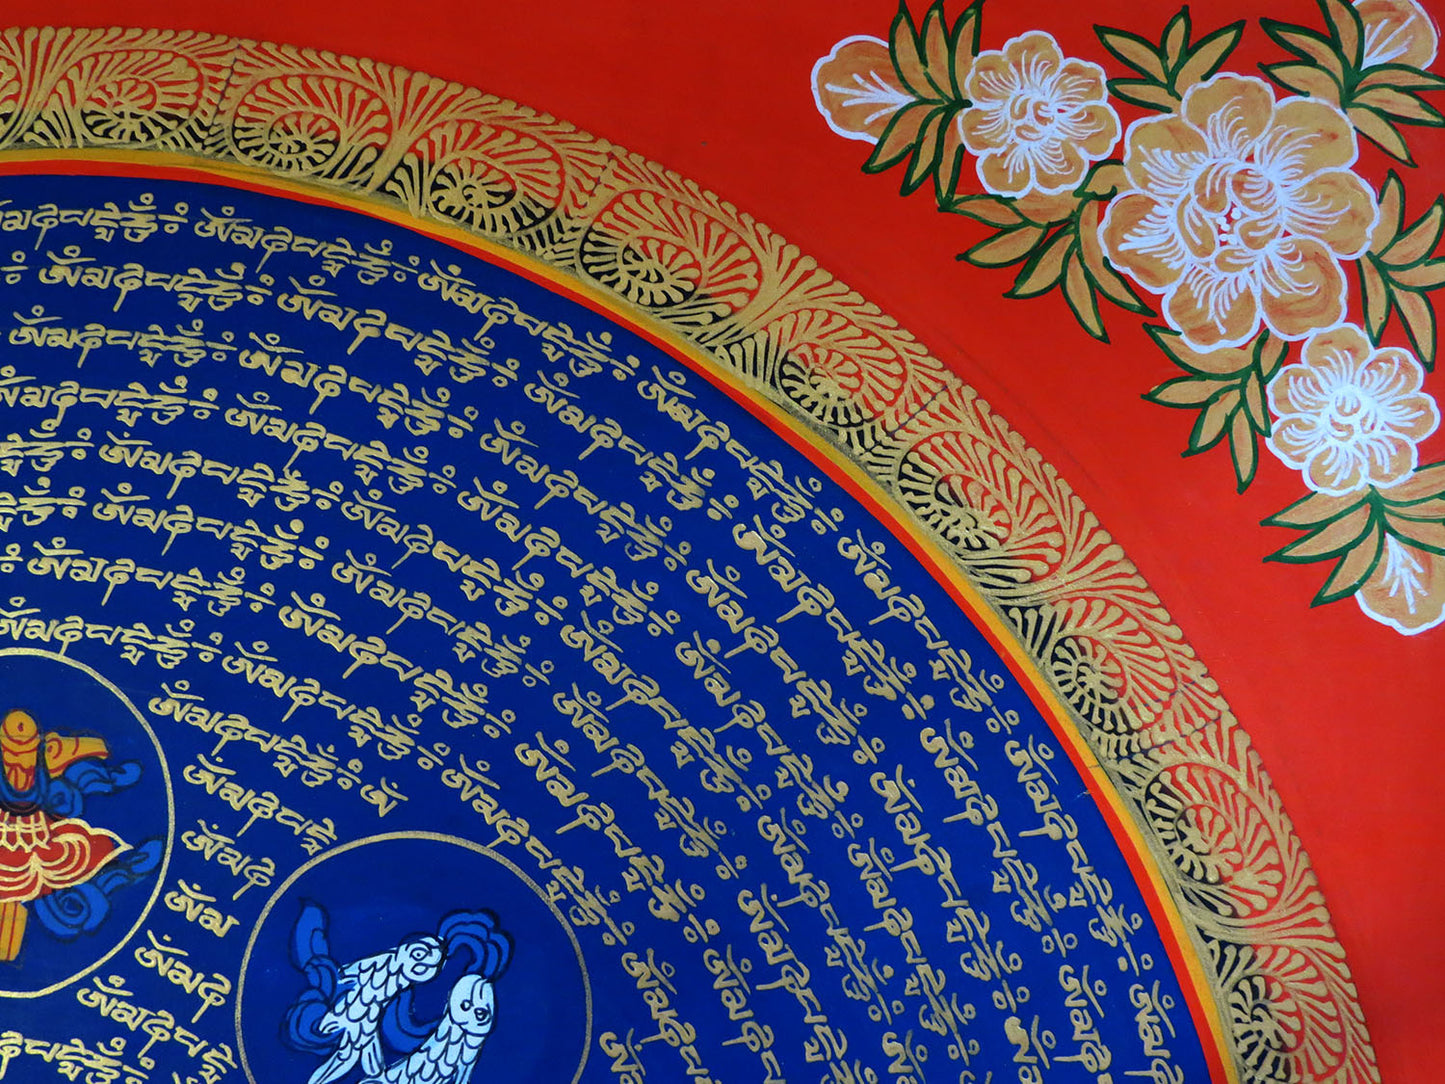 མཎིཔདྨེཧཱུྃ༔ ཨོཾམཎིཔདྨེཧཱུྃ༔ ཨོཾམཎིཔདྨེཧཱུྃ༔ ཨོཾམཎིཔདྨེཧཱུྃ༔ ཨོཾམཎིཔདྨེཧཱུྃ༔ ཨོཾམཎིཔདྨེཧཱུྃ༔ ཨོཾམ
༔ ཨོཾམཎིཔདྨེཧཱུྃ༔ ཨོཾམཎིཔདྨེཧཱུྃ༔ ཨོཾམཎིཔདྨེཧཱུྃ༔ ཨོཾམཎིཔདྨེཧཱུྃ༔ ཨོཾམཎིཔདྨེཧཱུྃ༔ ཨོཾམཎི
ཨོཾམཎིཔདྨེཧཱུྃ༔ ཨོཾམཎིཔདྨེཧཱུྃ༔ ཨོཾམཎིཔདྨེཧཱུྃ༔ ཨོཾམཎིཔདྨེཧཱུྃ༔ ཨོཾམཎིཔདྨེཧཱུྃ༔ ཨོཾམ
མཎིཔདྨེཧཱུྃ༔ ཨོཾམཎིཔདྨེཧཱུྃ༔ ཨོཾམཎིཔདྨེཧཱུྃ༔ ཨོཾམཎིཔདྨེཧཱུྃ༔ ཨོཾམཎིཔདྨེཧཱུྃ༔
དྨེཧཱུྃ༔ ཨོཾམཎིཔདྨེཧཱུྃ༔ ཨོཾམཎིཔདྨེཧཱུྃ༔ ཨོཾམཎིཔདྨེཧཱུྃ༔ ཨོཾམཎིཔདྨེཧཱུྃ༔
དྨེཧཱུྃ༔ ཨོཾམཎིཔདྨེཧཱུྃ༔ ཨོཾམཎིཔདྨེཧཱུྃ༔ ཨོཾམཎིཔདྨེཧཱུྃ༔ ཨོཾམཎིཔདྨེ
༔ ཨོཾམཎིཔདྨེཧཱུྃ༔ ཨོཾམཎིཔདྨེཧཱུྃ༔ ཨོཾམཎིཔདྨེཧཱུྃ༔ ཨོཾམཎི
ཨོཾམཎིཔདྨེཧཱུྃ༔ ཨོཾམཎིཔདྨེཧཱུྃ༔ ཨོཾམཎིཔདྨེཧཱུྃ༔ ཨོཾམཎི
ཨོཾམཎིཔདྨེཧཱུྃ༔ ཨོཾ
ཨོཾམཎིཔདྨེ
ཨོཾམཎི
ཨོཾམ
ཨོཾམཎི
ཨོཾམཎིཔདྨེ
ཎིཔདྨེཧཱུྃ༔